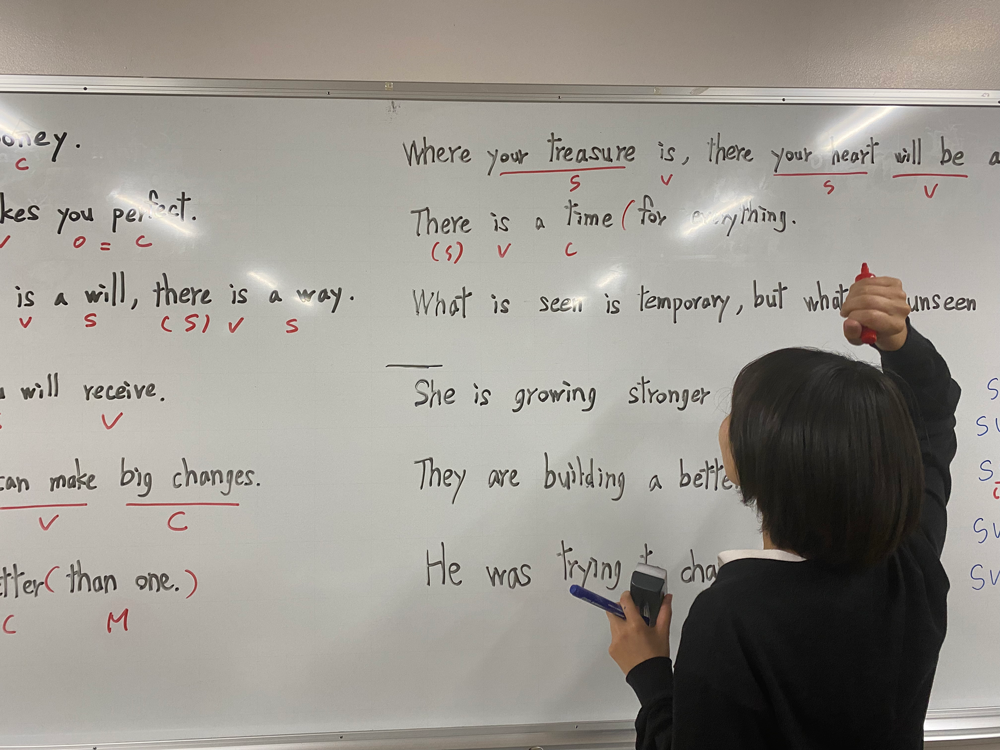 money.
C
kes you perfect.
V O = C
is a will, there is a way.
V S (S) V S
will receive.
V
can make big changes.
V C
tter (than one.)
C M
Where your treasure is, there your heart will be a
S V S V
There is a time (for everything.
(S) V C
What is seen is temporary, but what unseen
She is growing stronger
They are building a bette
He was trying t cha
S
SV
S
SV
SV